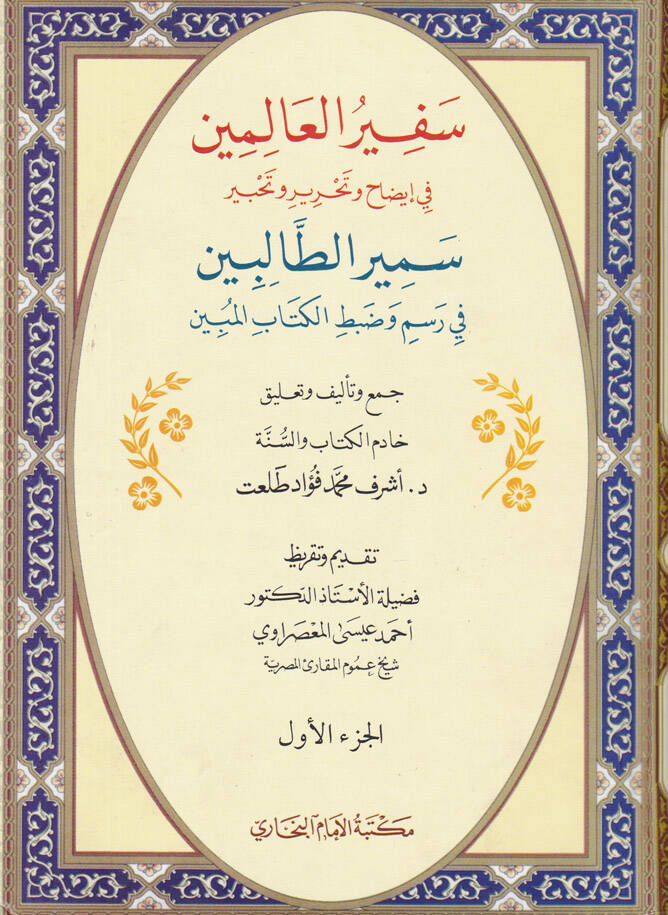 سَفِيرُ العَالِمِين
فِي إيضاح وتَحْرِيرٍ وتَحْبير
سَمِير الطَّالِبِين
فِي رَسمِ وَضَبطِ الكتَابِ المُبِين
جمع وتأليف وتعليق
خادم الكتاب والسُّنَّة
د. أشرف محمَّد فُؤاد طلعت
تقديم وتقريظ
فضيلة الأستاذ الدكتور
أحمد عيسَى المعصراوي
شيخ عموم المقارئ المصرية
الجزء الأول
مكتبة الإمام البخاري